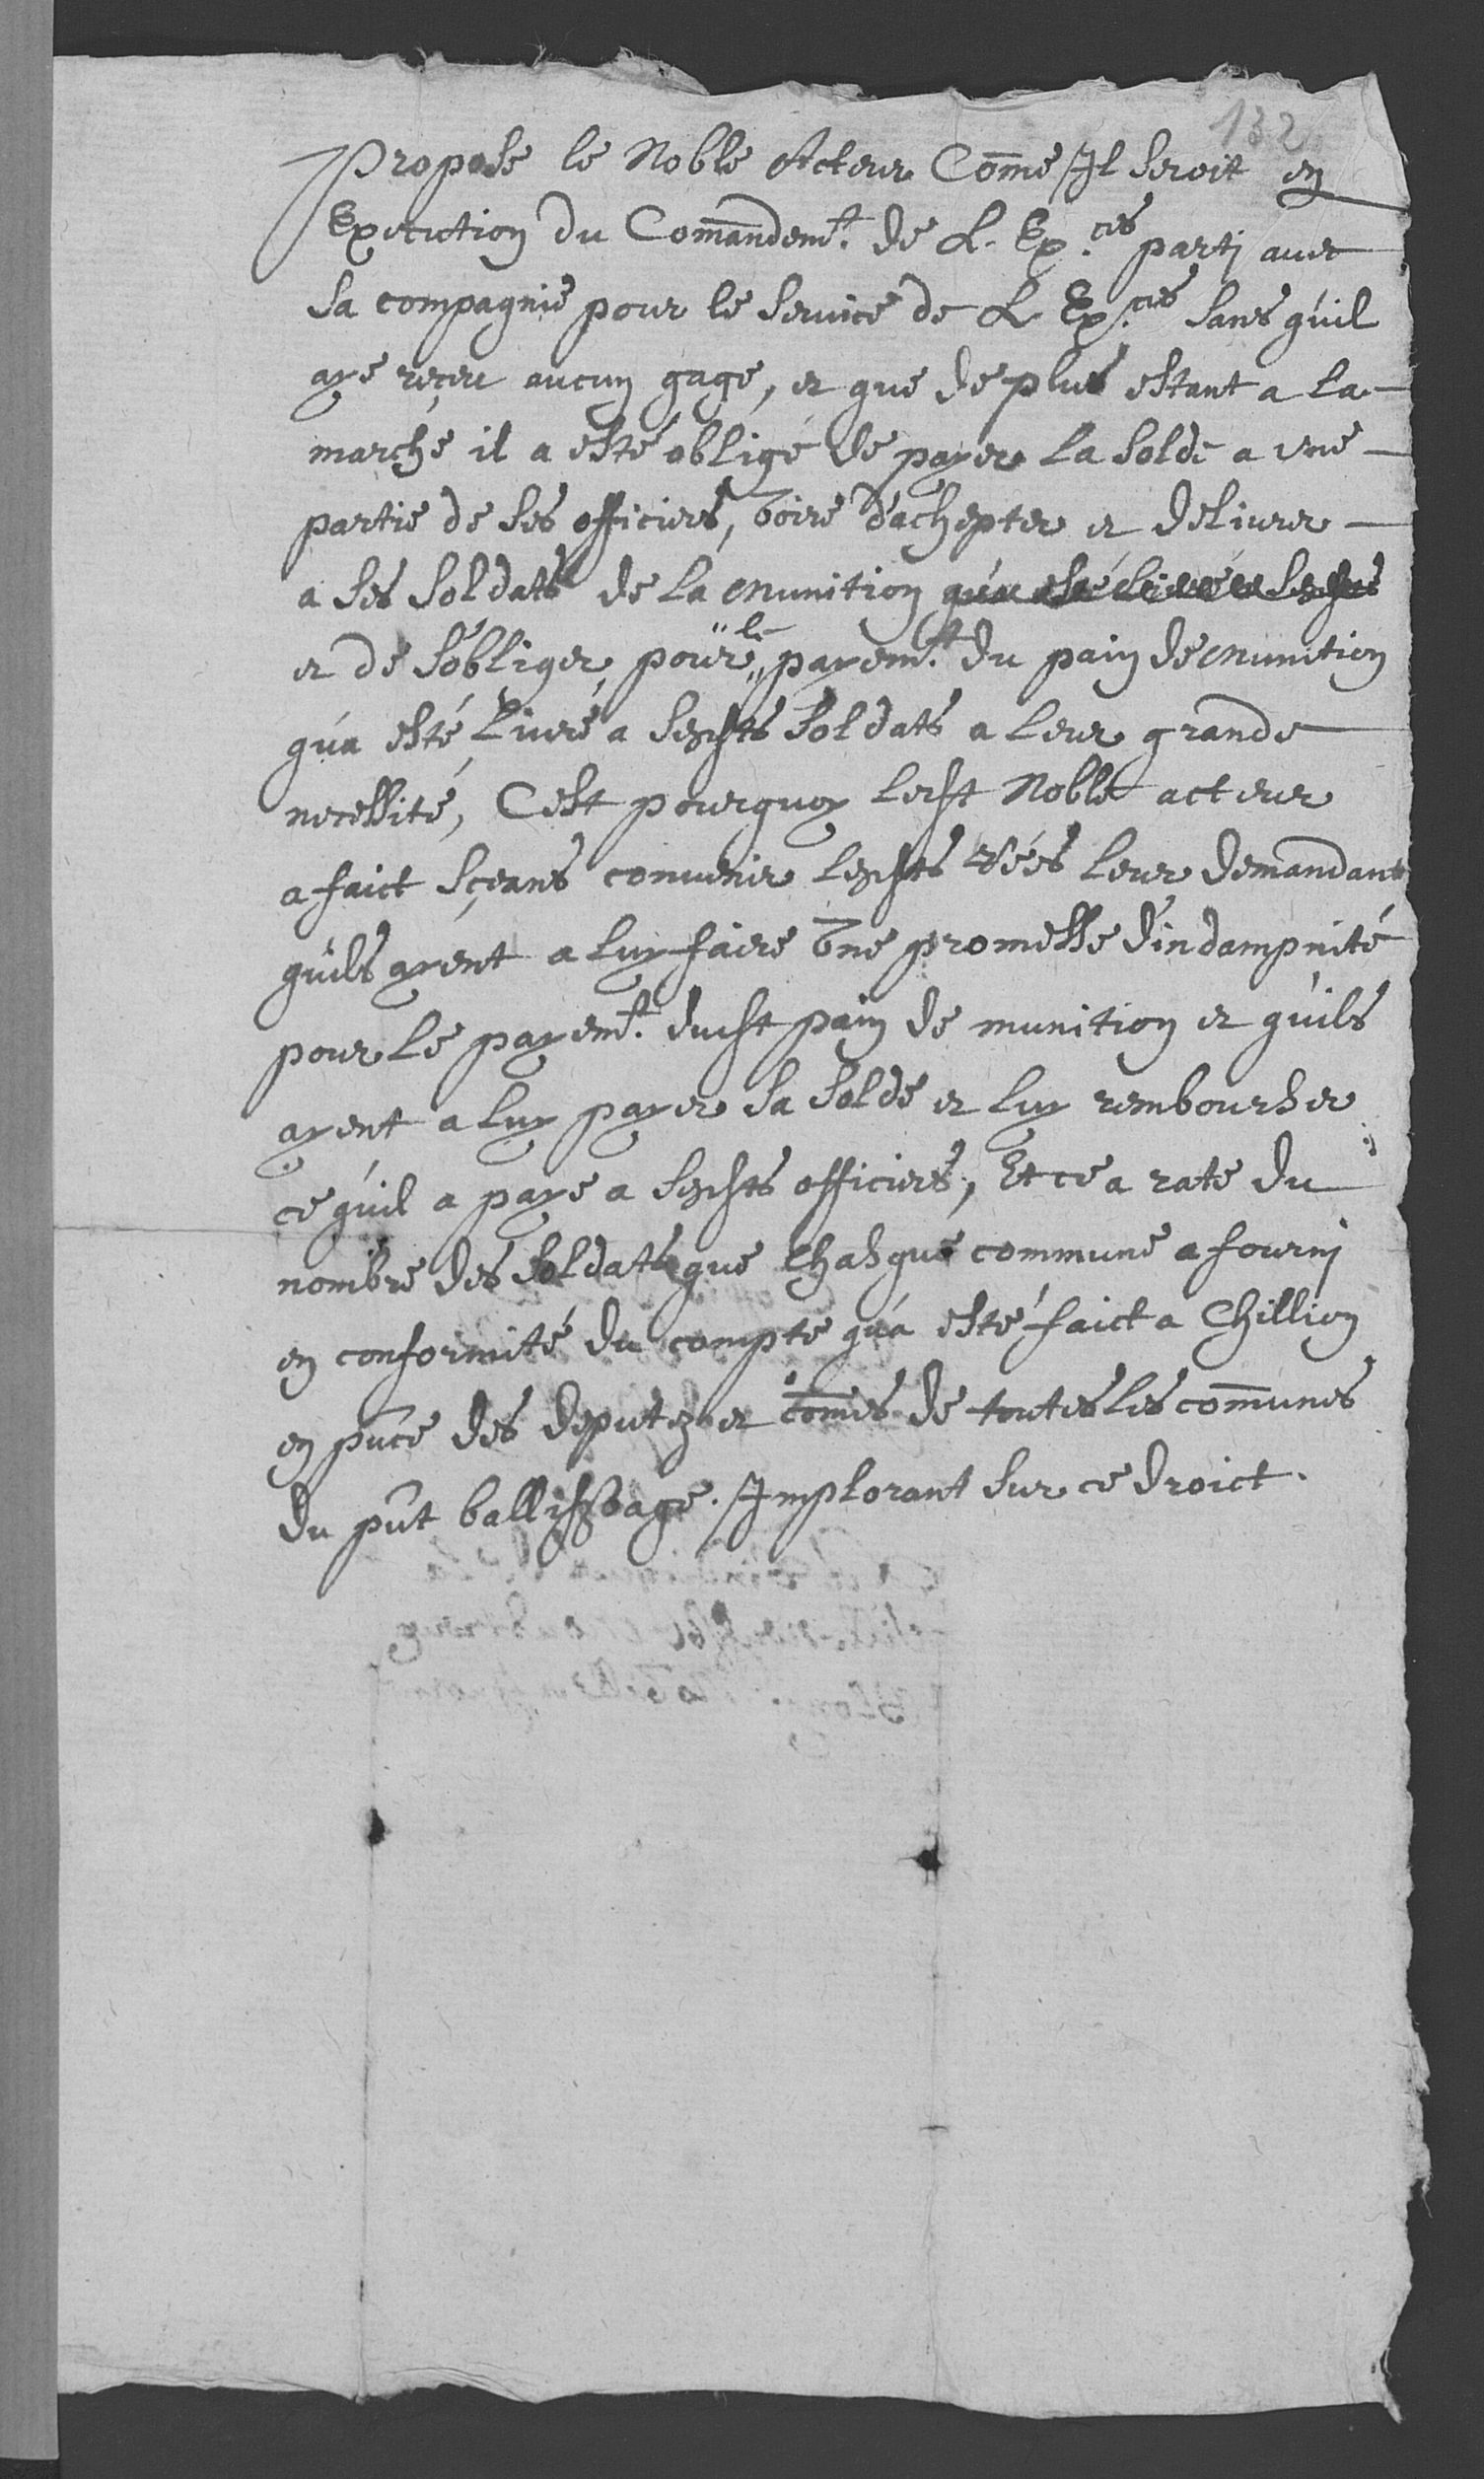 132
Propose le Noble Acteur Com̄e Il seroit en
Execution du Com̄andem.t de L. Ex.ces parti avec
sa compagnie pour le service de L Ex.ces sans qu'il
aye reçeu aucun gage, et que de plus estant a la
marche il a esté obligé de payer la solde a vne
partie de ses officiers, voire d'achepter et delivrer
a ses soldats de la munition qu'a esté livré a sesdts
et de s'obliger pour le payem.t du pain de munition
qu'a esté livré a sesdts soldats a leur grande
necessité, C'est pourquoy ledt Noble acteur
a faict sçeans convenir lesdts rées leur demandant
qu'ils ayent a luy faire vne promesse d'indampnité
pour le payem.t dudt pain de munition et qu'ils
ayent a luy payer sa solde et luy rembourser
ce qu'il a paye a sesdts officiers, Et ce a rate du
nombre des soldats que chasque commune a fourni
en conformité du compte qu'a esté faict a Chillion
en pn̄ce des deputez et com̄is de toutes les com̄unes
du pn̄t ballifvage. Implorant sur ce droict.